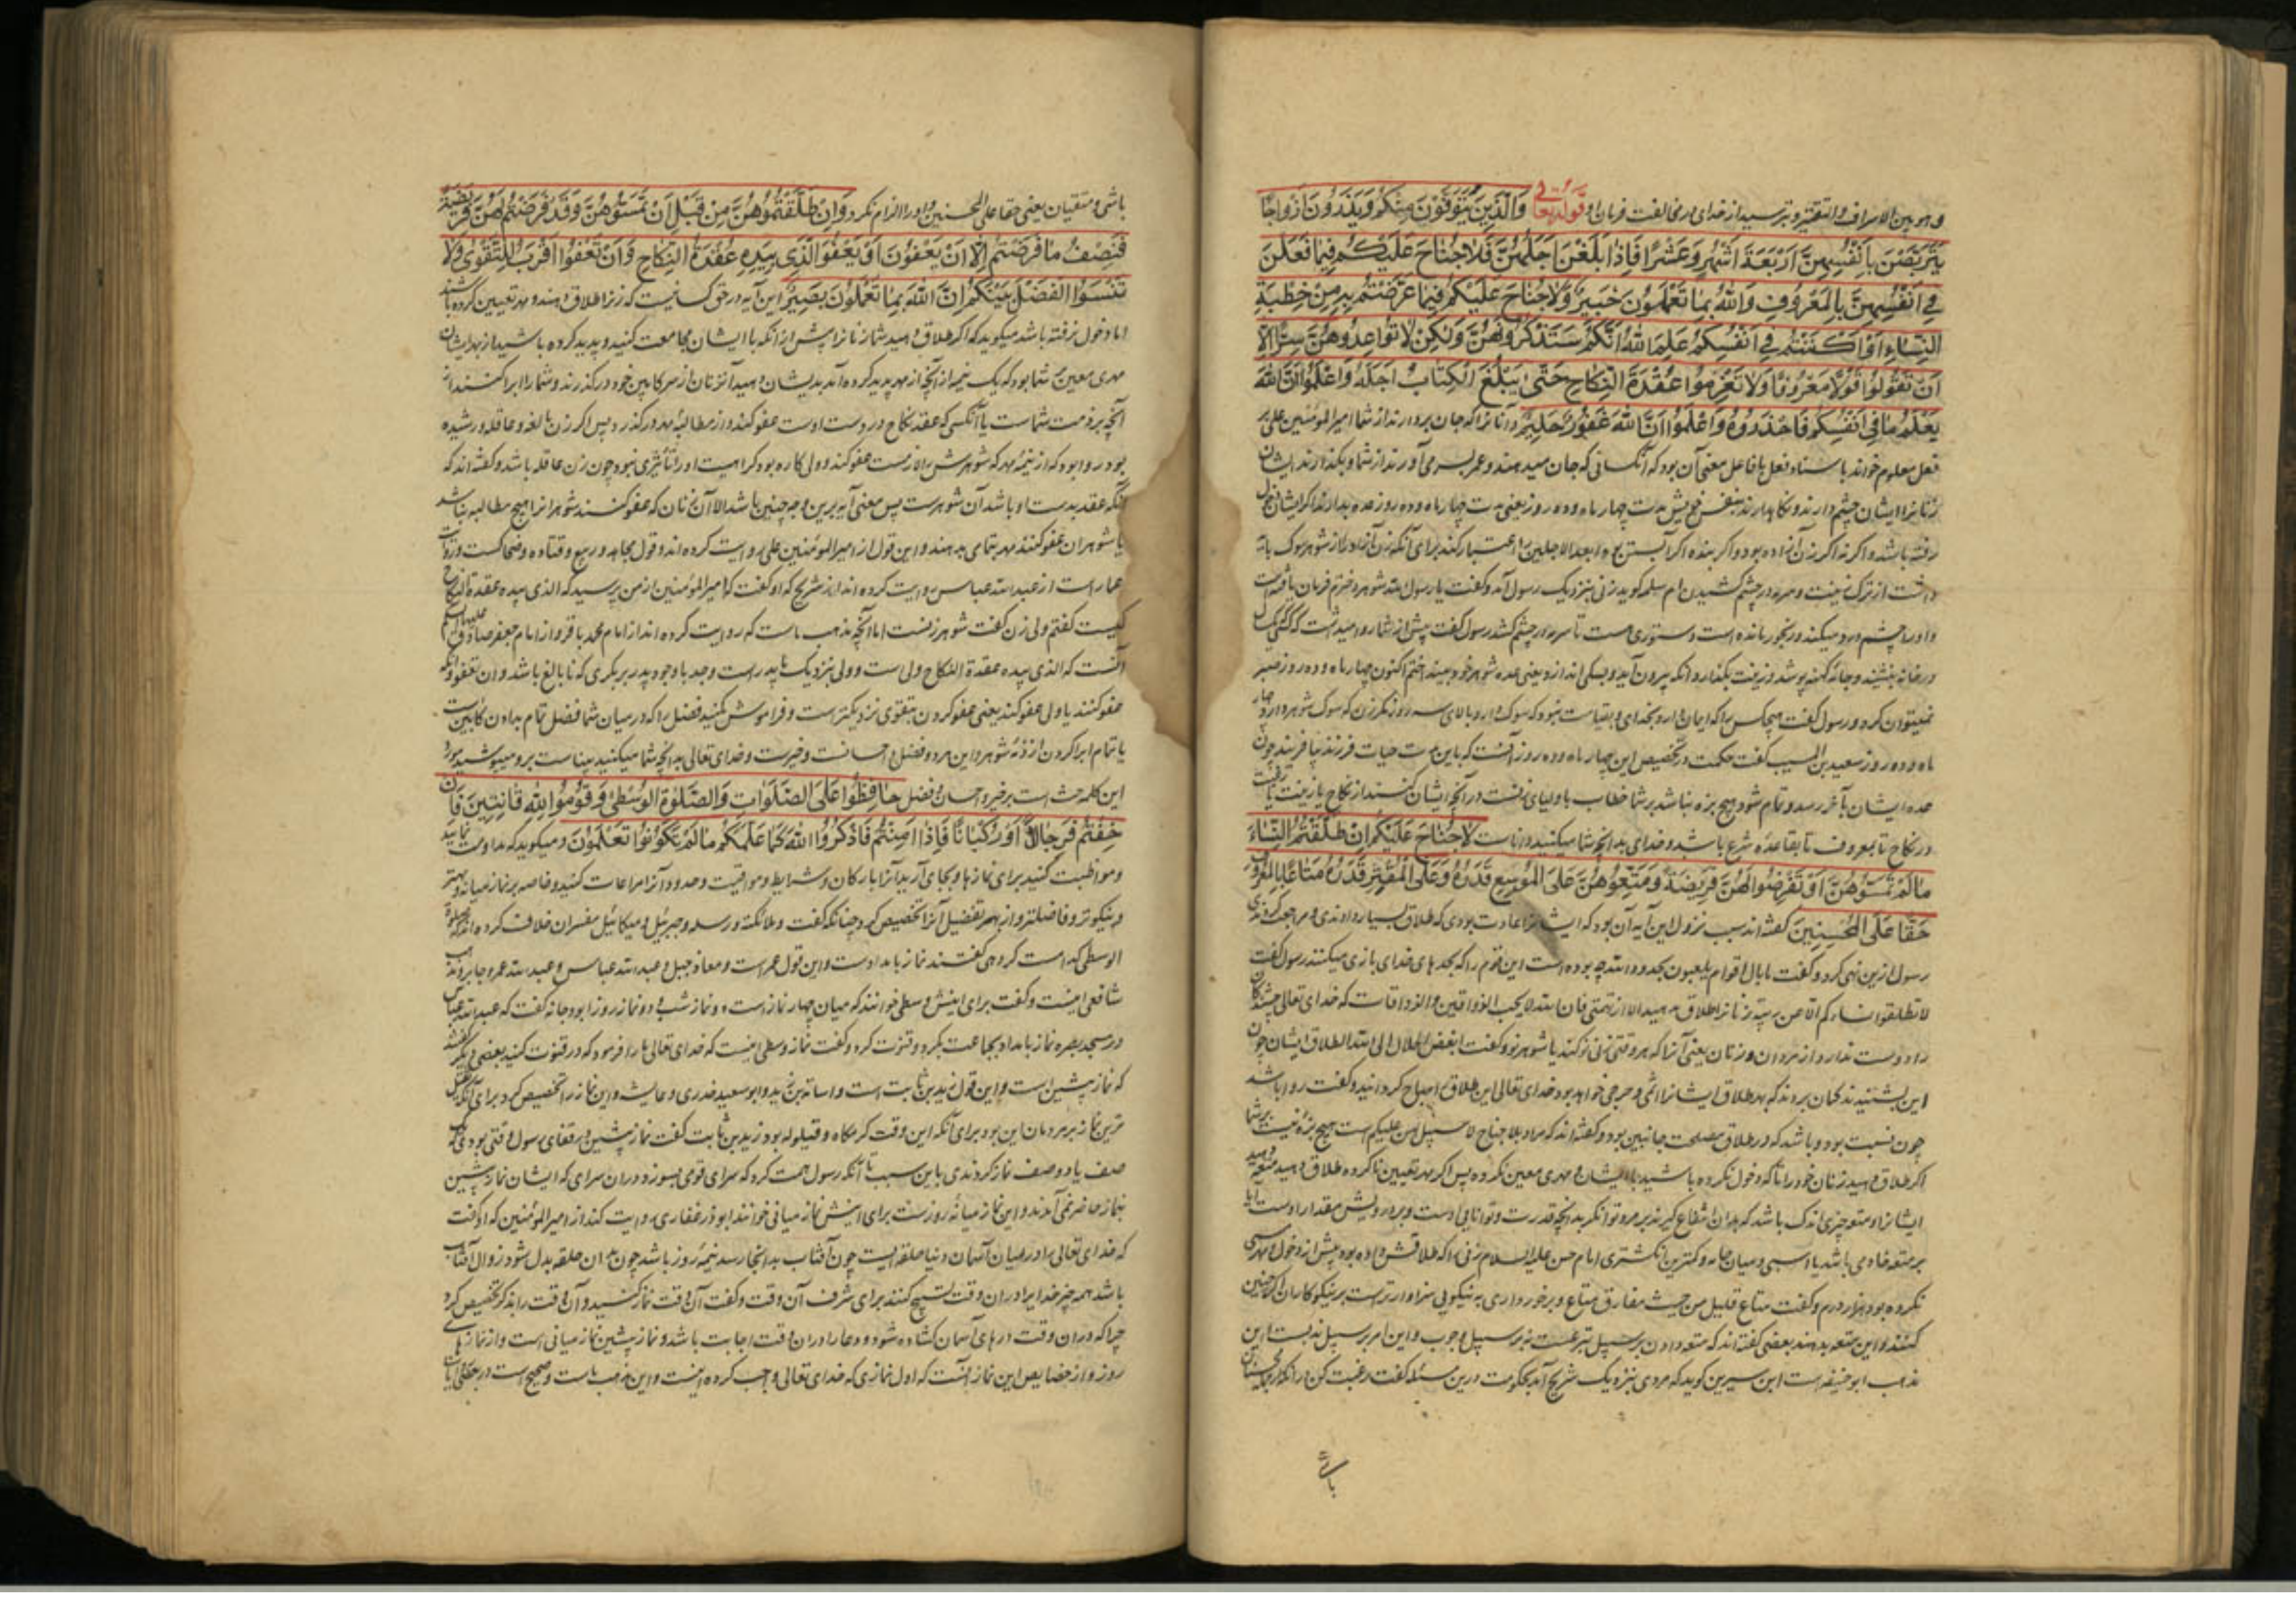 و هو بین الاسراف و التقتیر و بترسید از خدای در مخالفت فرمان او قوله تعالی وَالَّذِينَ يُتَوَفَّوْنَ مِنْكُمْ وَيَذَرُونَ أَزْوَاجًا
يَتَرَبَّصْنَ بِأَنْفُسِهِنَّ أَرْبَعَةَ أَشْهُرٍ وَعَشْرًا فَإِذَا بَلَغْنَ أَجَلَهُنَّ فَلَا جُنَاحَ عَلَيْكُمْ فِيمَا فَعَلْنَ
فِي أَنْفُسِهِنَّ بِالْمَعْرُوفِ وَاللَّهُ بِمَا تَعْمَلُونَ خَبِيرٌ وَلَا جُنَاحَ عَلَيْكُمْ فِيمَا عَرَّضْتُمْ بِهِ مِنْ خِطْبَةِ
النِّسَاءِ أَوْ أَكْنَنْتُمْ فِي أَنْفُسِكُمْ عَلِمَ اللَّهُ أَنَّكُمْ سَتَذْكُرُونَهُنَّ وَلَكِنْ لَا تُوَاعِدُوهُنَّ سِرًّا إِلَّا
أَنْ تَقُولُوا قَوْلًا مَعْرُوفًا وَلَا تَعْزِمُوا عُقْدَةَ النِّكَاحِ حَتَّى يَبْلُغَ الْكِتَابُ أَجَلَهُ وَاعْلَمُوا أَنَّ اللَّهَ
يَعْلَمُ مَا فِي أَنْفُسِكُمْ فَاحْذَرُوهُ وَاعْلَمُوا أَنَّ اللَّهَ غَفُورٌ حَلِيمٌ و آنانرا که جان بردارند از شما امیرالمؤمنین علی بر
فعل معلوم خواند باسناد فعل با فاعل معنی آن بود که آنکسانی که جان میدهند و عمر بسر می آورند از شما و بگذارند ایشان
زنانرا ایشان چشم دارند و نگاهدارند بنفس خویش مدت چهار ماه و ده روز یعنی مدت چهار ماه و ده روز عده بدارند اگر ایشان دخول
رفته باشد و اگر نه اگر زن آزاده بود و اگر بنده اگر آبستن بود ابعد الاجلین را اعتبار کند برای آنکه زن آزاد را از شوهر سوک باید
داشت از ترک زینت و سرمه در چشم کشیدن ام سلمه گوید زنی بنزدیک رسول آمد و گفت یا رسول الله شوهر دخترم فرمان یافته است
و او را چشم درد میکند و رنجور مانده است دستوری هست تا سرمه در چشم کشد رسول گفت پیش از شما روا میداشت که
در خانه بنشیند و جامه کهنه پوشد و زینت بگذارد و آنکه بیرون آید و بسکی اندازد یعنی عده شوهر خود ببیند اختم اکنون چهار ماه و ده روز صبر
نمیتوان کرد و رسول گفت هیچکس را که ایمان دارد بخدای و بقیامت نبود که سوک دارد بالای سه روز مگر زن که سوک شوهر دارد چهار
ماه و ده روز سعید بن المسیب گفت حکمت در تخصیص این چهار ماه و ده روز آنست که باین مدت حیات فرزند بیافریند چون
عده ایشان بآخر رسد و تمام شود هیچ بزه نباشد بر شما خطاب باولیای زنست در آنچه ایشان کنند از نکاح یا زینت یافت
در نکاح تا بمعروف تا بقاعده شرع باشد و خدای بدانچه شما میکنید داناست لَا جُنَاحَ عَلَيْكُمْ إِنْ طَلَّقْتُمُ النِّسَاءَ
مَا لَمْ تَمَسُّوهُنَّ أَوْ تَفْرِضُوا لَهُنَّ فَرِيضَةً وَمَتِّعُوهُنَّ عَلَى الْمُوسِعِ قَدَرُهُ وَعَلَى الْمُقْتِرِ قَدَرُهُ مَتَاعًا بِالْمَعْرُوفِ
حَقًّا عَلَى الْمُحْسِنِينَ گفته اند سبب نزول این آیه آن بود که ایشانرا عادت بودی که طلاق بسیار دادندی و مراجعت کردندی
رسول ازین نهی کرد و گفت ما بال اقوام یلعبون بحدود الله چه بوده است این قوم را که بحدهای خدای بازی میکنند رسول گفت
لا تطلقوا نساءکم الا عن ریبة زنانرا طلاق مدهید الا از تهمتی فان الله لا یحب الذواقین و الذواقات که خدای تعالی چشندگان
را دوست ندارد از مردان و زنان یعنی آنرا که هر وقتی زنی نو کند یا شوهر نو و گفت ابغض الحلال الی الله الطلاق ایشان چون
این بشنیدند گمان بردند که بهر طلاق ایشانرا اثمی و حرجی خواهد بود خدای تعالی این طلاق را مباح گردانید و گفت روا باشد
چون نسبت بود و باشد که در طلاق مصلحت جانبین بود و گفته اند که مراد بلا جناح لا سبیل لهن علیکم است هیچ بزه نیست بر شما
اگر طلاق دهید زنان خود را تا که دخول نکرده باشید با ایشان و مهری معین نکرده پس اگر مهر تعیین ناکرده طلاق دهید متعه دهید
ایشانرا و متعه چیزی اندک باشد که بدان انتفاع گیرند بر مرد توانگر بدانچه قدرت و توانایی اوست و بر درویش مقدار اوست
بر متعه خادمی باشد یا اسبی و میان جامه و کمترین انگشتری امام حسن علیه السلام زنی را که طلاقش داده بود پیش از دخول و مهر مسمی
نکرده بود هزار درم و گفت متاع قلیل من حبیب مفارق متاع و برخورداری به نیکویی سزاوارتر است بر نیکوکاران که چنین
کنند و این متعه بدهند بعضی گفته اند که متعه دادن بر سبیل تبرعست نه بر سبیل وجوب و این امر بر سبیل ندبست این
مذهب ابو حنیفه است ابن سیرین گوید که مردی بنزدیک شریح آمد بحکومت درین مسئله گفت رغبت کن در آنکه از محسنان
باشی
باشی و متقیان یعنی حقا علی المحسنین و او را الزام نکرد وَإِنْ طَلَّقْتُمُوهُنَّ مِنْ قَبْلِ أَنْ تَمَسُّوهُنَّ وَقَدْ فَرَضْتُمْ لَهُنَّ فَرِيضَةً
فَنِصْفُ مَا فَرَضْتُمْ إِلَّا أَنْ يَعْفُونَ أَوْ يَعْفُوَ الَّذِي بِيَدِهِ عُقْدَةُ النِّكَاحِ وَأَنْ تَعْفُوا أَقْرَبُ لِلتَّقْوَى وَلَا
تَنْسَوُا الْفَضْلَ بَيْنَكُمْ إِنَّ اللَّهَ بِمَا تَعْمَلُونَ بَصِيرٌ این آیه در حق کسانیست که زنرا طلاق دهند و مهر تعیین کرده باشند
اما دخول نرفته باشد میگوید که اگر طلاق دهید شما زنانرا پیش از آنکه با ایشان مجامعت کنید و پدید کرده باشید از مهر ایشان
مهری معین شما بود که یک نیمه از آنچه از مهر پدید کرده آید بدیشان دهید آن زنان از سر کابین خود درگذرند و شما را ابرا کنند از
آنچه بر ذمت شماست یا آنکسی که عقد نکاح در دست اوست عفو کند و از مطالبه مهر درگذرد پس اگر زن بالغه و عاقله و رشیده
بود روا بود که از نیمه مهر که شوهرش را لازمست عفو کند و ولی کاره بود کراهیت او را تأثیری نبود چون زن عاقله باشد و گفته اند که
آنکه عقد بدست او باشد آن شوهرست پس معنی آیه برین وجه چنین باشد الا آن زنان که عفو کنند شوهرانرا هیچ مطالبه نباشد
یا شوهران عفو کنند مهر بتمامی بدهند و این قول از امیرالمؤمنین علی روایت کرده اند و قول مجاهد و ربیع و قتاده و ضحاکست و روایت
عمار است از عبدالله عباس روایت کرده اند از شریح که او گفت که امیرالمؤمنین از من پرسید که الذی بیده عقدة النکاح
کیست گفتم ولی زن گفت شوهر زنست اما آنچه مذهب ماست که روایت کرده اند از امام محمد باقر و از امام جعفر صادق علیهما السلام
آنست که الذی بیده عقدة النکاح ولی است و ولی بنزدیک ما پدر است و جد با وجود پدر بر بکری که نابالغ باشد و ان تعفوا و آنکه
عفو کنند یا ولی عفو کند یعنی عفو کردن بتقوی نزدیکترست و فراموش مکنید فضل را که در میان شما فضل تمام بدادن کابین است
یا تمام ابرا کردن از ذمه شوهر و این مرد و فضل و احسانست و خیرست و خدای تعالی بدانچه شما میکنید بیناست
این کلمه حث است بر خیر و احسان و فضل حَافِظُوا عَلَى الصَّلَوَاتِ وَالصَّلَوةِ الْوُسْطَى وَقُومُوا لِلَّهِ قَانِتِينَ فَإِنْ
خِفْتُمْ فَرِجَالًا أَوْ رُكْبَانًا فَإِذَا أَمِنْتُمْ فَاذْكُرُوا اللَّهَ كَمَا عَلَّمَكُمْ مَا لَمْ تَكُونُوا تَعْلَمُونَ و میگوید که مداومت نمایید
و مواظبت کنید برای نمازها و بجای آرید آنرا با ارکان و شرایط و مواقیت و حدود آنرا مراعات کنید و خاصه بر نماز میانه و بهتر
و نیکوتر و فاضلتر و از بهر تفضیل آنرا تخصیص کرد چنانکه گفت و ملائکته و رسله و جبرئیل و میکائیل مفسران خلاف کرده اند که صلوة
الوسطی کدامست گروهی گفتند نماز بامدادست و این قول عمر است و معاذ جبل و عبدالله عباس و عبدالله عمر و جابر و مذهب
شافعی اینست و گفت برای اینش وسطی خوانند که میان چهار نماز است دو نماز شب و دو نماز روز ابو رجا گفت که عبدالله عباس
در مسجد بصره نماز بامداد بجماعت بکرد و قنوت کرد و گفت نماز وسطی اینست که خدای تعالی ما را فرمود که در او قنوت کنید بعضی دیگر گفتند
که نماز پیشین است و این قول زید بن ثابت است و اسامة بن زید و ابو سعید خدری و عایشه و این نماز را تخصیص کرد برای آنکه ثقیل
ترین نماز بر مردمان این بود برای آنکه این وقت گرمگاه و قیلوله بود زید بن ثابت گفت نماز پیشین در قفای رسول وقتی بودی که یک
صف یا دو صف نماز کردندی باین سبب تا آنکه رسول همت کرد که سرای قومی بسوزد در آن سرای که ایشان نماز پیشین
بنماز حاضر نمی آمدند و این نماز میانه روزست برای اینش نماز میانی خوانند ابوذر غفاری روایت کند از امیرالمؤمنین که او گفت
که خدای تعالی را در میان آسمان دنیا حلقه ایست چون آفتاب بدانجا رسد نیمه روز باشد چون بدان حلقه بدل شود زوال آفتاب
باشد همه چیز خدایرا در آن وقت تسبیح کنند برای شرف آن وقت و گفت آن وقت نماز کنید و آن وقت را بذکر تخصیص کرد
چرا که در آن وقت درهای آسمان گشاده شود و دعا را در آن وقت اجابت باشد و نماز پیشین نماز میانی است و از نمازهای
روز و از خصایص این نماز آنست که اول نمازی که خدای تعالی واجب کرده اینست و این مذهب ماست و صحیح است در بعضی